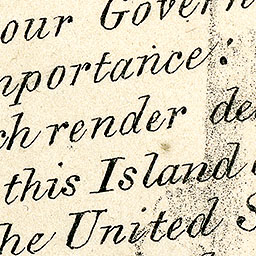 our Govern
mportance:
ch render de
this Island
he United S